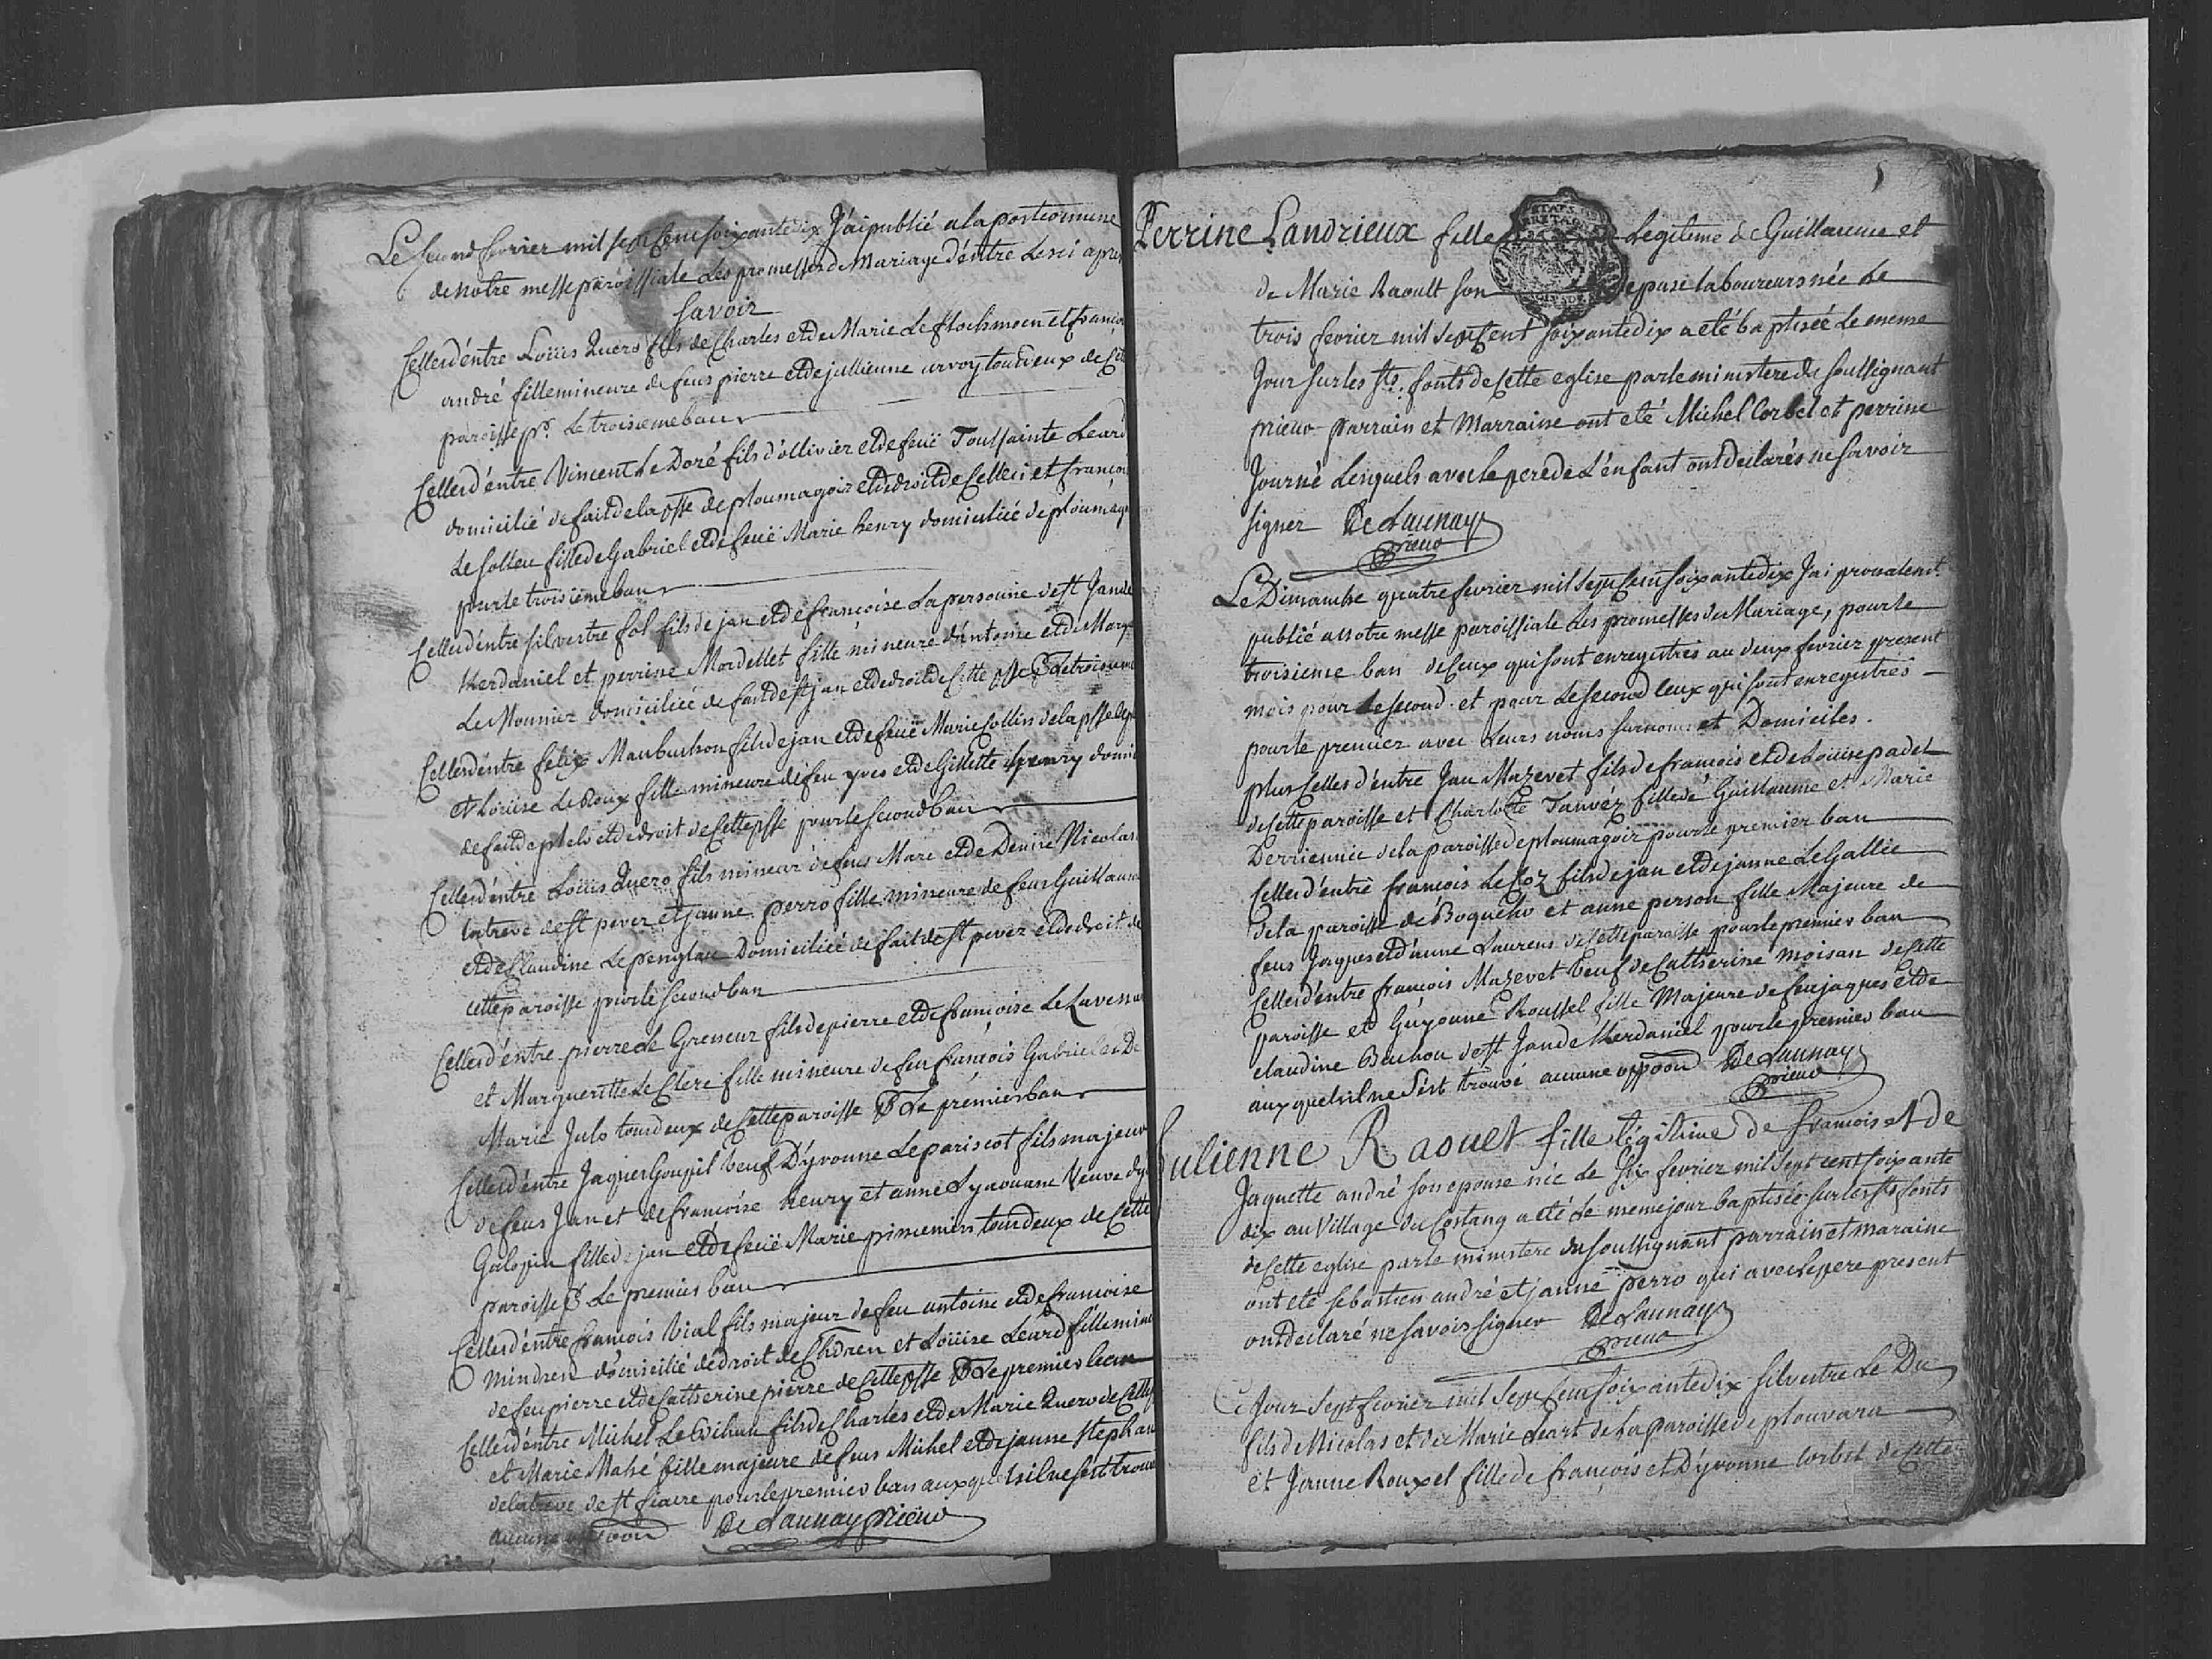 Le second fevrier mil sept cent soixante dix J'ai publié a la porte commune
de notre messe paroissiale les promesses de Mariage d'entre les ci apres
Savoir
Celles d'entre Loüis Quero fils de Charles et de Marie Le flochmoen et françoi
andré fille mineure de feus pierre et de jullienne urvoy tous deux de Cette
paroisse pr. Le troisieme ban
Celles d'entre Vincent Le Doré fils d'ollivier et de feuë Toussainte Leard
domicilié de fait de la psse de ploumagoir et de droit de Celleci et françoi
Le Colleu fille de Gabriel et de feuë Marie henry domiciliée de ploumago
pour le troisieme ban
Celles d'entre silvestre fol fils de jan et de françoise Lapersonne de st Jan de
Kerdaniel et perrine Mordellet fille mineure d'antoine et de Marg
Le Mounier domiciliée de fait de st jan et de droit de Cette psse Pr Le troisieme
Celles d'entre felix Maubuchon fils de jan et de feuë Marie Collin de la psse de
et Loüise Le Roux fille mineure de feu yves et de Gillette henry domi
de fait de plelo et de droit de Cette psse pour le second ban
Celles d'entre Loüis Quero fils mineur de feus Marc et de Denise Nicolas
la treve de st pever et janne perro fille mineure de feus Guillaume
et de Claudine Le penglau Domiciliée de fait de st pever et de droit de
cette paroisse pour le second ban
Celles d'entre pierre Le Greneur fils de pierre et de françoise Le Lavenan
et Margueritte Le Clere fille mineure de feu françois Gabriel et De
Marie Julo tous deux de Cette paroisse Pr Le premier ban
Celles d'entre Jaques Goupil Veuf D'yvonne Le pariscot fils majeur
de feus Jan et de françoise henry et anne Lyaouanc Veuve dy
Galopin fille de jan et de feuë Marie primemin tous deux de Cette
paroisse Pr Le premier ban
Celles d'entre françois Vial fils majeur de feu antoine et de françoise
Mindren domicilié de droit de et Loüise Leard fille mine
de feu pierre et de Catherine pierre de Cette psse Pr Le premier ban
Celles d'entre Michel Le Bihan fils de Charles et de Marie Quero de Cette
et Marie Mahé fille majeure de feus Michel et de janne Stephan
de la treve de st fiacre pour le premier ban auxquels il ne s'est trouvé
aucune oppoon De Launay prieur
Perrine Landrieux fille Legitime de Guillaume et
de Marie Raoult son epouse laboureurs née Le
trois fevrier mil sept Cent soixante dix a eté baptisée Le meme
Jour sur les sts. fonts de Cette eglise par le ministere du soussignant
prieur parrain et Marraine ont eté Michel Corbel et perrine
Journé Lesquels avec le pere de L'enfant ont declarés ne savoir
signer De Launay
prieur
Le Dimanche quatre fevrier mil sept Cent soixante dix J'ai prealemt.
publié a notre messe paroissiale les promesses de Mariage, pour le
troisieme ban de Ceux qui sont enregistrés au deux fevrier present
mois pour Le second. et pour Le second Ceux qui sont enregistrés
pour le premier avec Leurs noms surnoms et Domiciles.
plus Celles d'entre Jan Mazevet fils de francois et de Loüise padel
de Cette paroisse et Charlotte Tanvéz fille de Guillaume et Marie
Derriennic de la paroisse de ploumagoir pour le premier ban
Celles d'entre françois Le Coz fils de jan et de janne Le Gallic
de la paroisse de Boqueho et anne person fille Majeure de
feus Jaques et d'anne Laurens de Cette paroisse pour le premier ban
Celles d'entre françois Mazevet Veuf de Catherine moisan de Cette
paroisse et Guyonne Roussel fille Majeure de feu jaques et de
claudine Bauhou de st Jan de Kerdaniel pour le premier ban
auxquels il ne s'est trouvé aucune oppoon De Launay
prieur
Julienne Raouet fille légitime de francois et de
Jaquette andré son epouse née Le six fevrier mil sept cent soixante
dix au Village du Costang a eté Le meme jour baptisée sur les sts fonts
de Cette eglise par le ministere du soussignant parrain et maraine
ont eté sebastien andré et janne perro qui avec le pere present
ont declaré ne savoir signer De Launay
prieur
Ce Jour sept fevrier mil sept Cent soixante dix silvestre Le Du
fils de Nicolas et de Marie Leart de La paroisse de plouvara
et Janne Rouxel fille de françois et D'yvonne Corbel de Cette